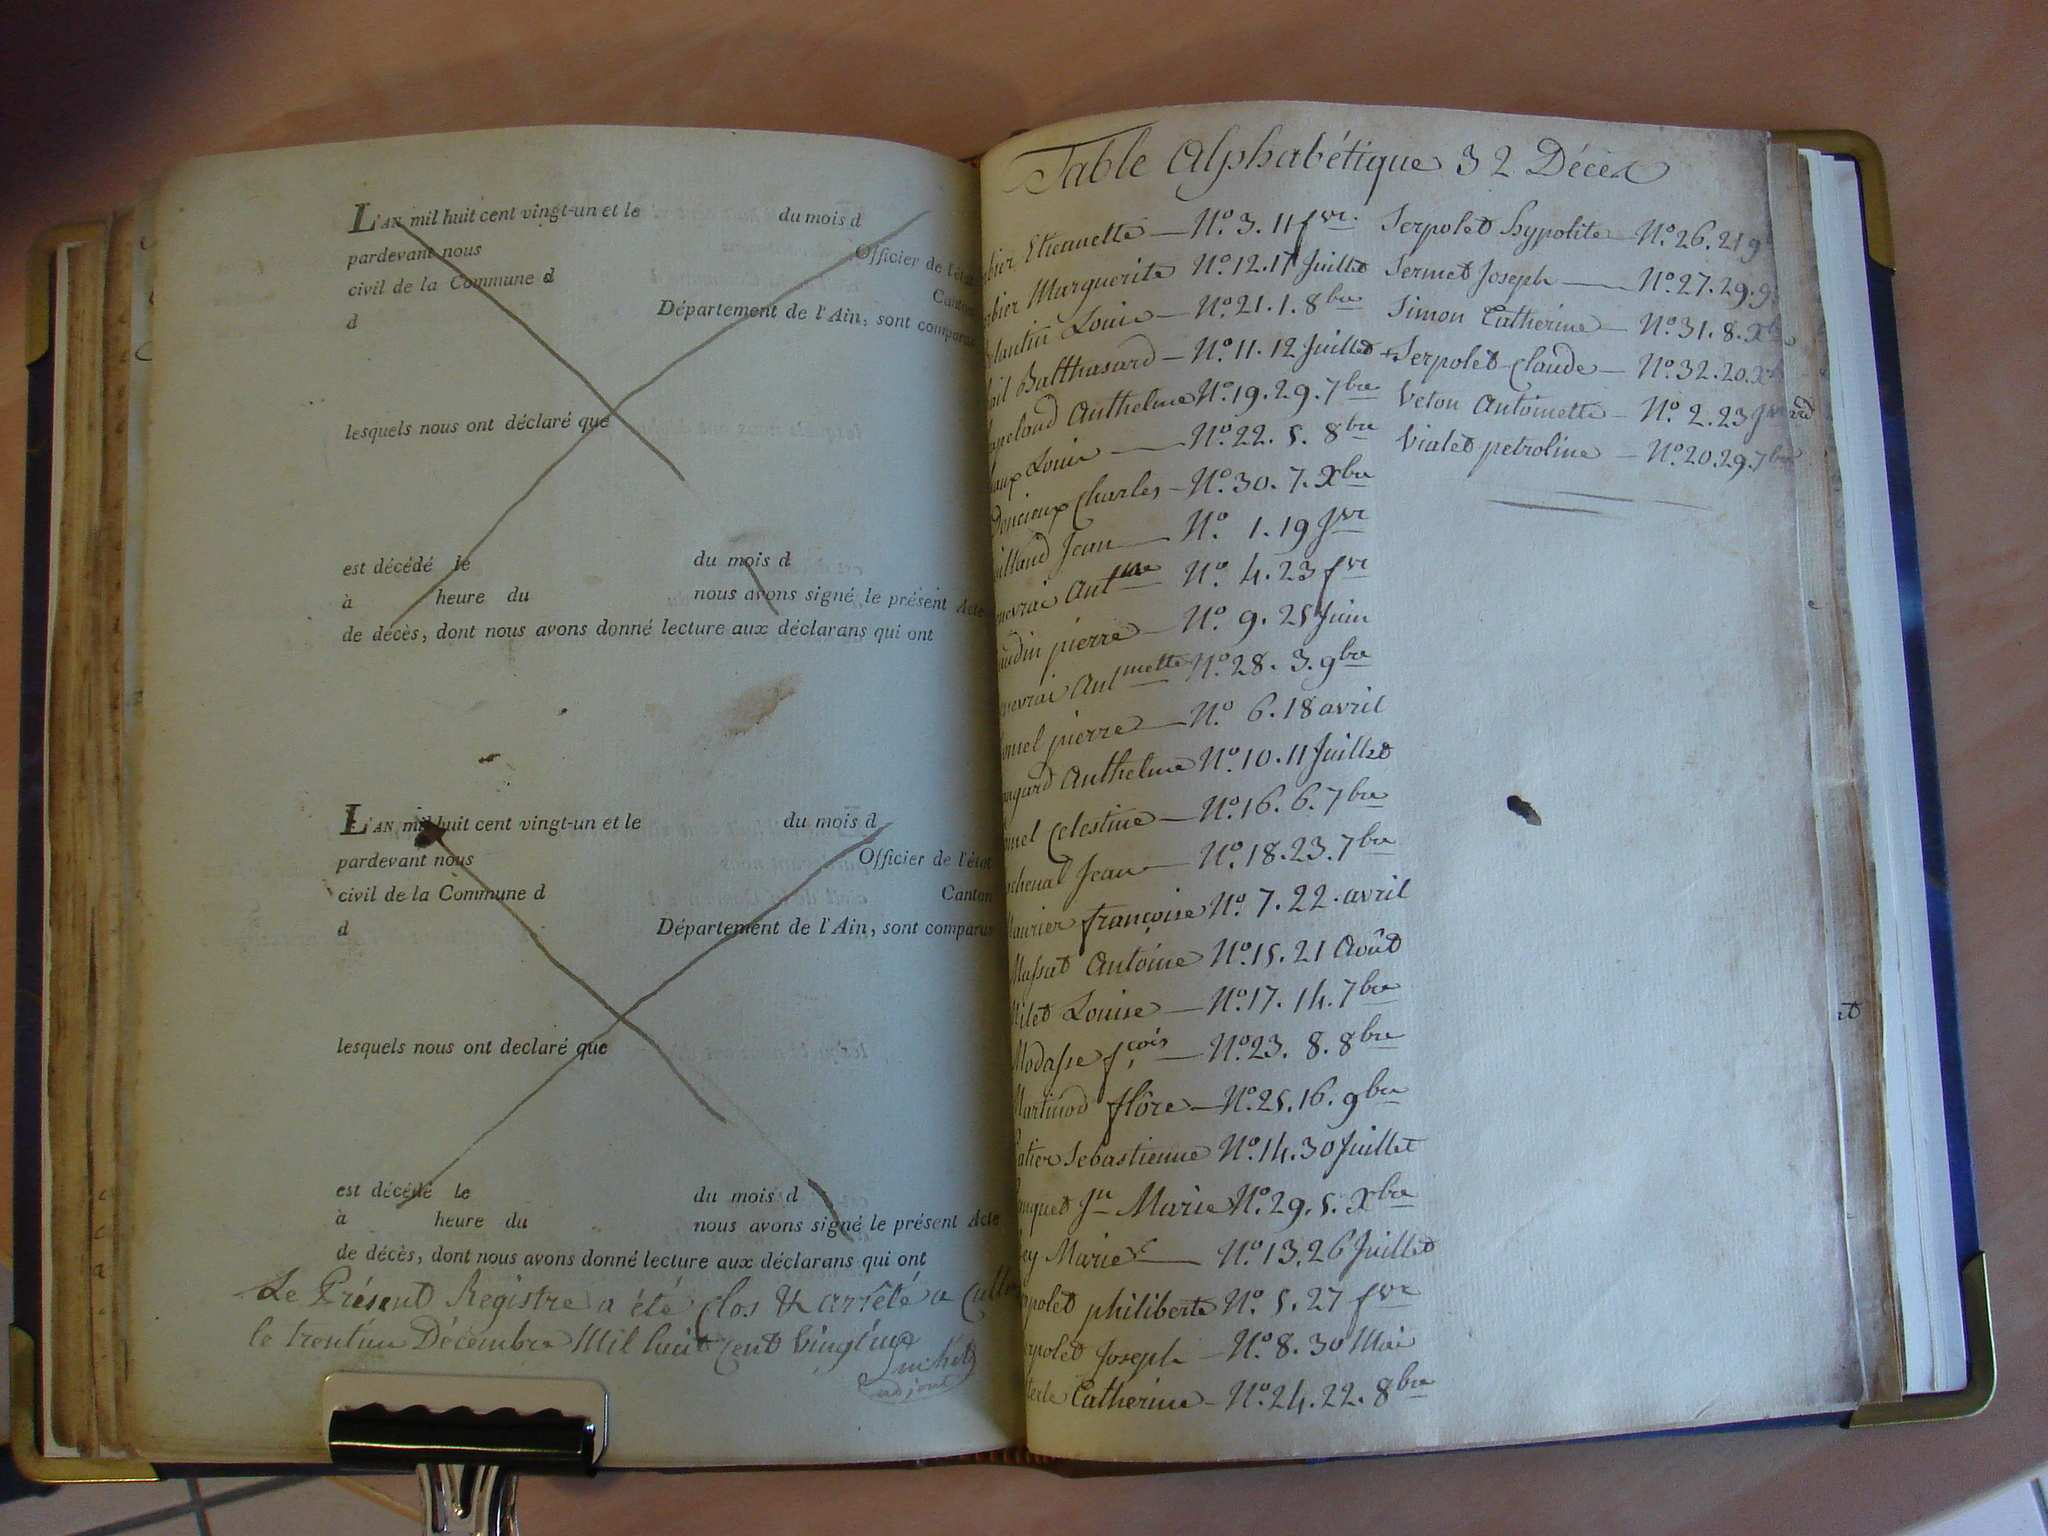 L'AN mil huit cent vingt-un et le du mois d
pardevant nous Officier de l'état
civil de la Commune d Canton
d Département de l'Ain, sont comparus
lesquels nous ont déclaré que
est décédé le du mois d
à heure du nous avons signé le présent Acte
de décès, dont nous avons donné lecture aux déclarans qui ont
L'AN mil huit cent vingt-un et le du mois d
pardevant nous Officier de l'état
civil de la Commune d Canton
d Département de l'Ain, sont comparus
lesquels nous ont declaré que
est décédé le du mois d
à heure du nous avons signé le présent Acte
de décès, dont nous avons donné lecture aux déclarans qui ont
Le Présent Registre a été clos & arrêté a
le trentun Décembre Mil huit cent vingt un
adjoint
Table Alphabétique 32 Décès
Etiennette N.º 3. 11 fvr.
Marguerite N.º 12. 17 Juillet
Louis N.º 21. 1. 8bre
Balthasard N.º 11. 12 Juillet
Anthelme N.º 19. 29. 7bre
Louis N.º 22. 5. 8bre
Doncieux Charles N.º 30. 7. Xbre
Jean N.º 1. 19 Jvr
N.º 4. 23 fvr
pierre N.º 9. 25 Juin
N.º 28. 3. 9bre
pierre N.º 6. 18 avril
Anthelme N.º 10. 11 Juillet
Celestine N.º 16. 6. 7bre
Jean N.º 18. 23. 7bre
françoise N.º 7. 22. avril
Massat Antoine N.º 15. 21 Août
Louise N.º 17. 14. 7bre
Modasse fçois N.º 23. 8. 8bre
Martinod flôre N.º 25. 16. 9bre
Sebastienne N.º 14. 30 Juillet
Jn Marie N.º 29. 5. Xbre
Marie N.º 13. 26 Juillet
philiberte N.º 5. 27 fvr
Joseph N.º 8. 30 Mai
Catherine N.º 24. 22. 8bre
Serpolet hypolite N.º 26. 21 9
Sermet Joseph N.º 27. 29. 9
Simon Catherine N.º 31. 8. Xb
Serpolet Claude N.º 32. 20. X
Veton Antoinette N.º 2. 23 Jvr
Vialet petroline N.º 20. 29. 7bre